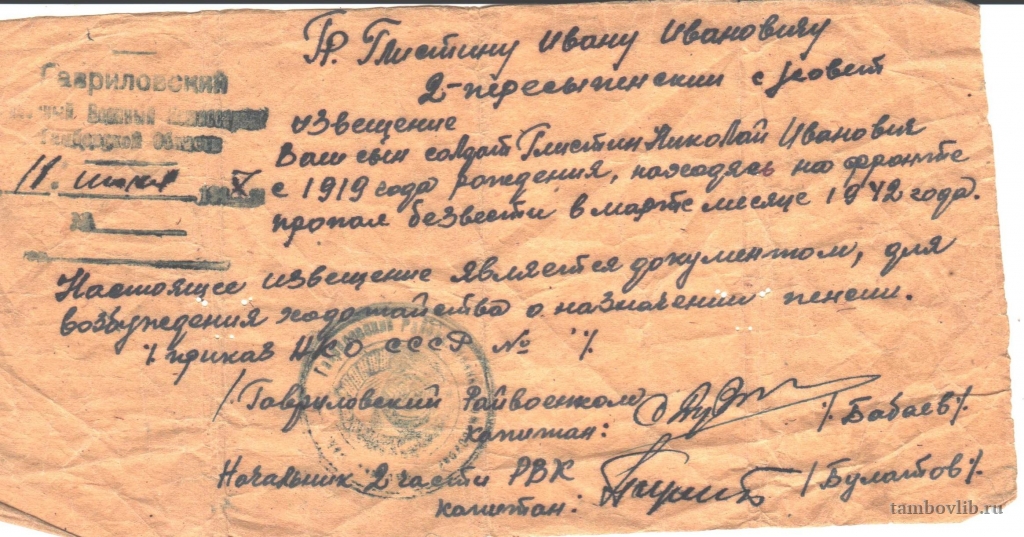 Гр. Глистину Ивану Ивановичу
2-пересыпенский с/совет
Гавриловский
Военный
Тамбовской Области
11. июня
извещение
Ваш сын солдат Глистин Николай Иванович
с 1919 года рождения, находясь на фронте
пропал безвести в марте месяце 1942 года.
Настоящее извещение является документом, для
возбуждения ходатайства о назначении пенсии.
% приказ НКО СССР № %
/Гавриловский Райвоенком
капитан: /Бабаев/.
Начальник 2 части РВК
капитан: /Булатов/.
tambovlib.ru